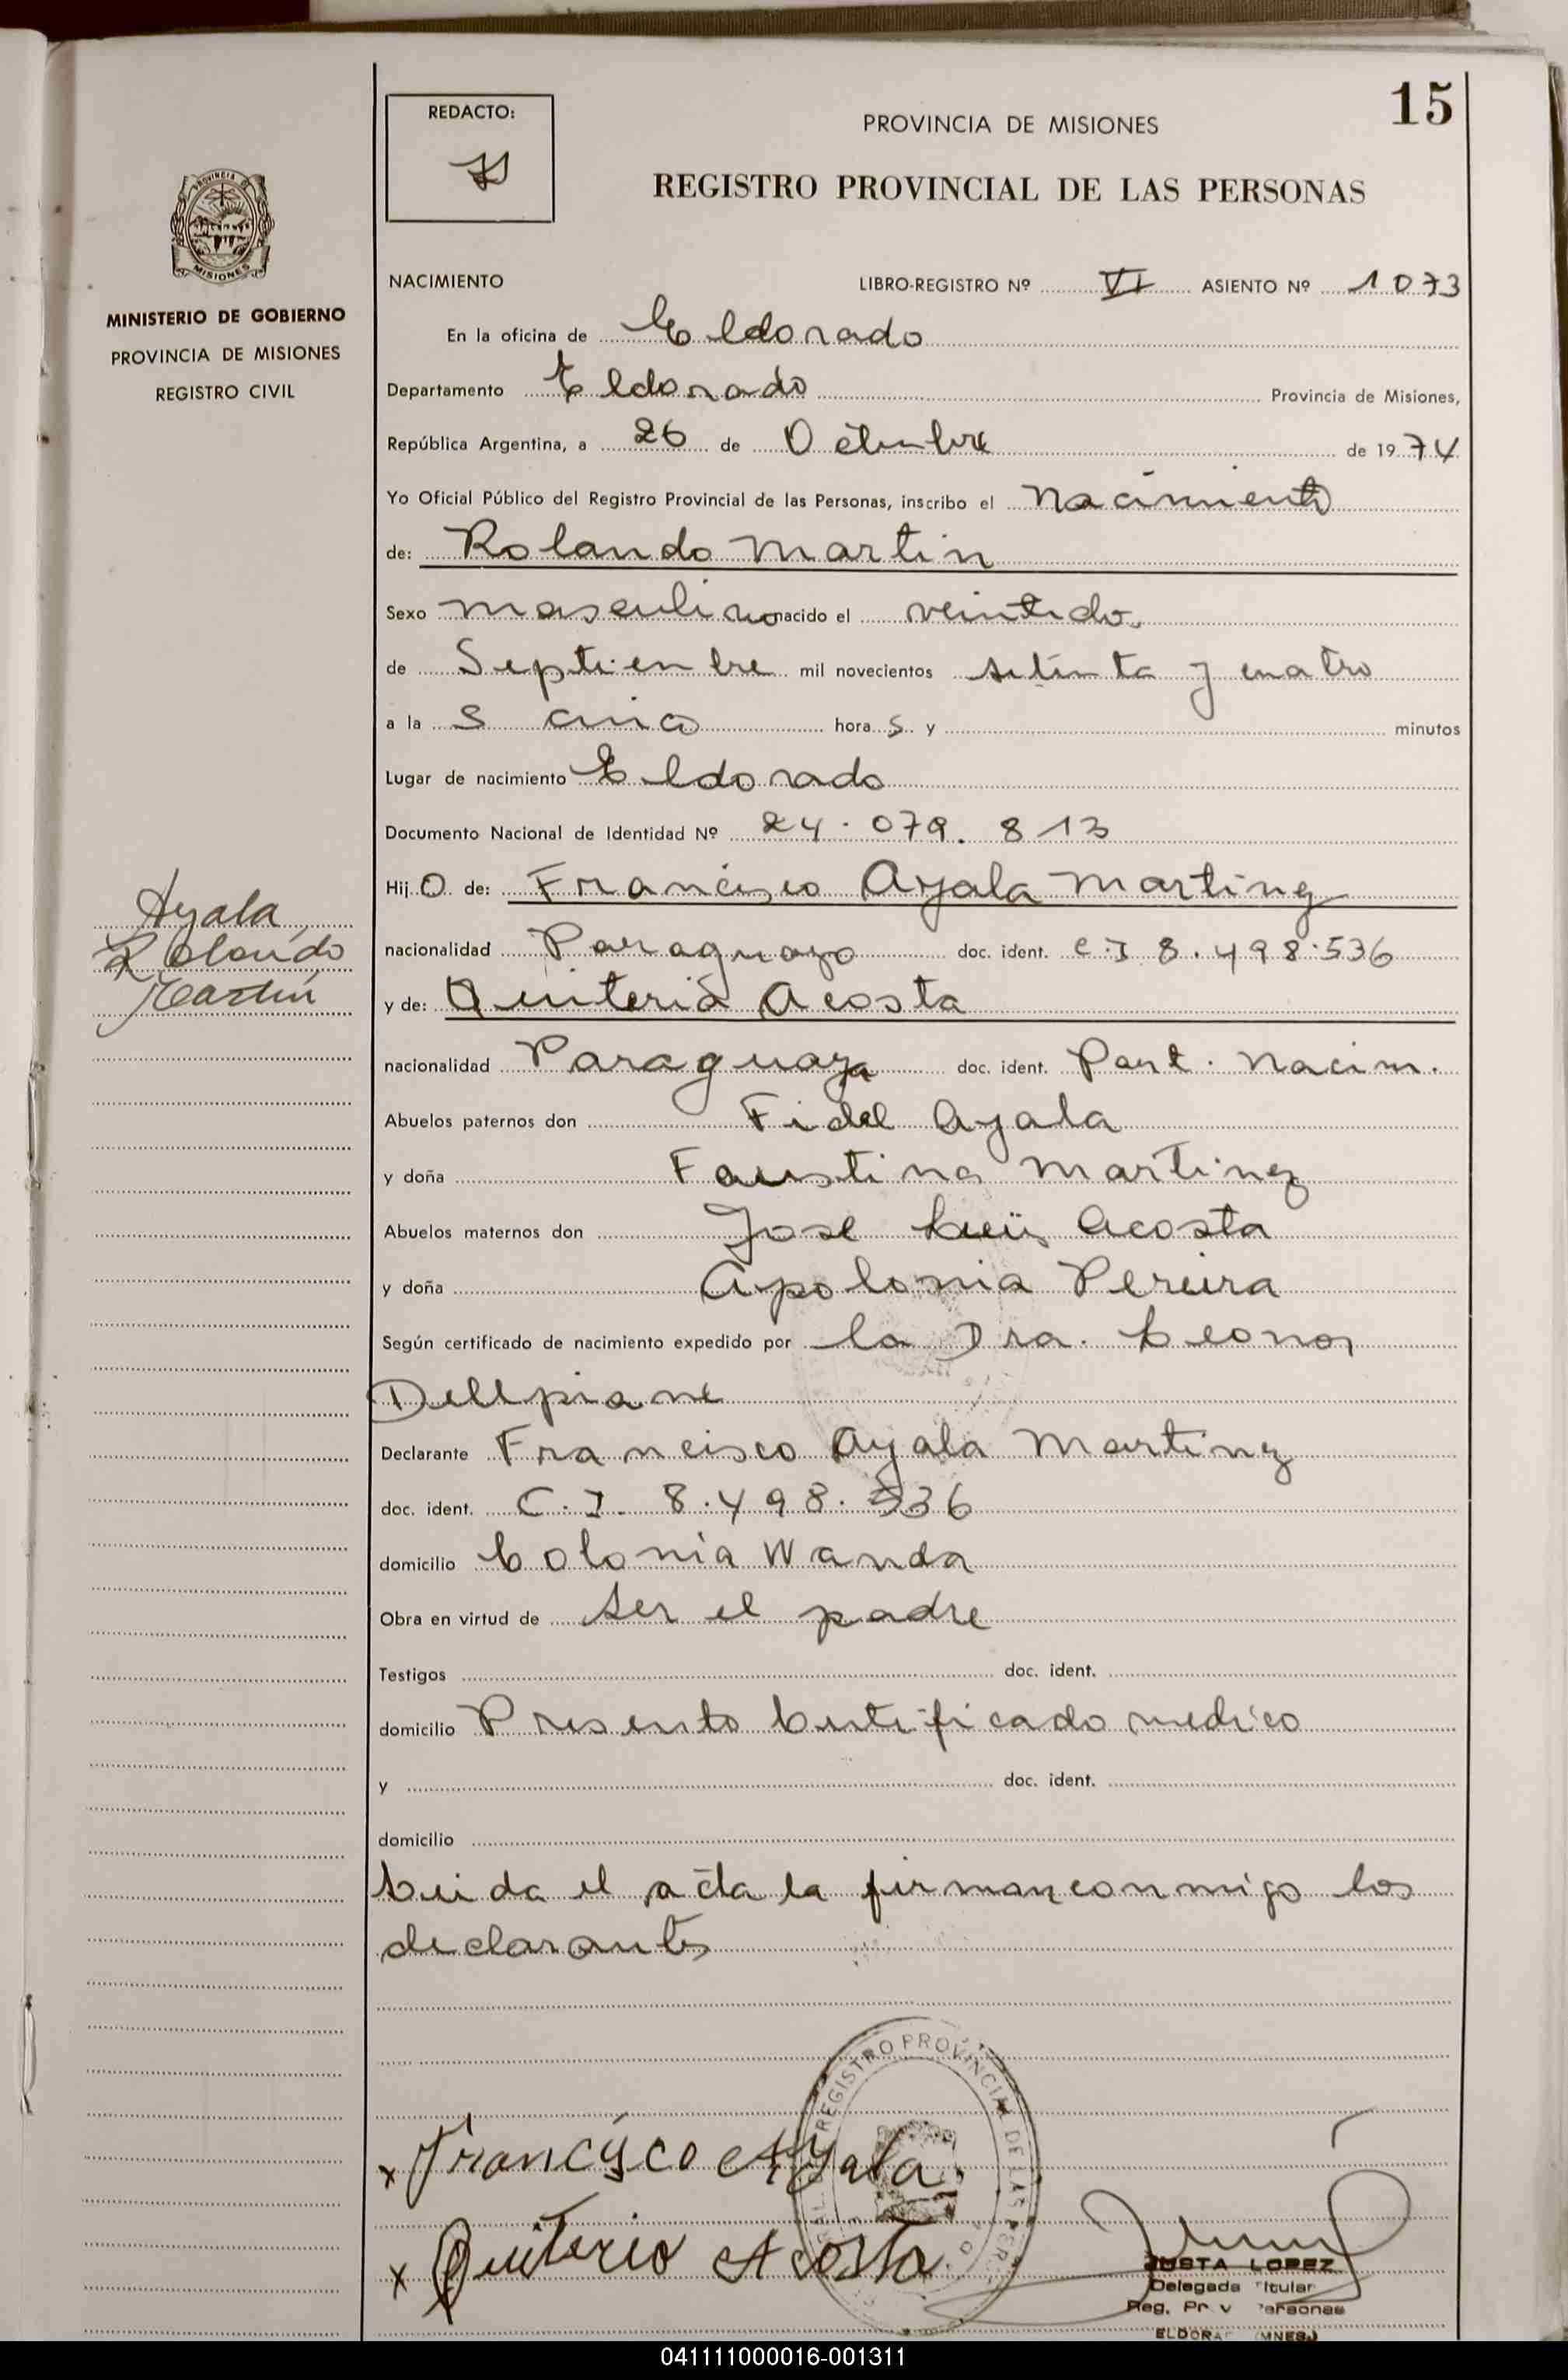 15
REDACTO:
PROVINCIA DE MISIONES
REGISTRO PROVINCIAL DE LAS PERSONAS
PROVINCIA
MISIONES
MINISTERIO DE GOBIERNO
PROVINCIA DE MISIONES
REGISTRO CIVIL
NACIMIENTO LIBRO-REGISTRO Nº VI ASIENTO Nº 1073
En la oficina de Eldorado
Departamento Eldorado Provincia de Misiones,
República Argentina, a 26 de Octubre de 1974
Yo Oficial Público del Registro Provincial de las Personas, inscribo el Nacimiento
de: Rolando Martin
Sexo masculino nacido el veintidos
de Septiembre mil novecientos setenta y cuatro
a la s cinco hora s y minutos
Lugar de nacimiento Eldorado
Documento Nacional de Identidad Nº 24.079.813
Hijo de: Francisco Ayala Martinez
Ayala
Rolando
Martín
nacionalidad Paraguayo doc. ident. C.I 8.498.536
y de: Quiteria Acosta
nacionalidad Paraguaya doc. ident. Part. Nacim.
Abuelos paternos don Fidel Ayala
y doña Faustina Martinez
Abuelos maternos don Jose Luis Acosta
y doña Apolonia Pereira
Según certificado de nacimiento expedido por la Dra. Leonor
Dellepiane
Declarante Francisco Ayala Martinez
doc. ident. C.I. 8.498.536
domicilio Colonia Wanda
Obra en virtud de ser el padre
Testigos doc. ident.
domicilio Presento Certificado medico
y doc. ident.
domicilio
Leida el acta la firman conmigo los
declarantes
REGISTRO PROVINCIAL DE LAS PERS
x Francisco Ayala
x Quiteria Acosta
JUSTA LOPEZ
Delegada Titular
Reg. Prov Personas
ELDORADO (MNES)
041111000016-001311